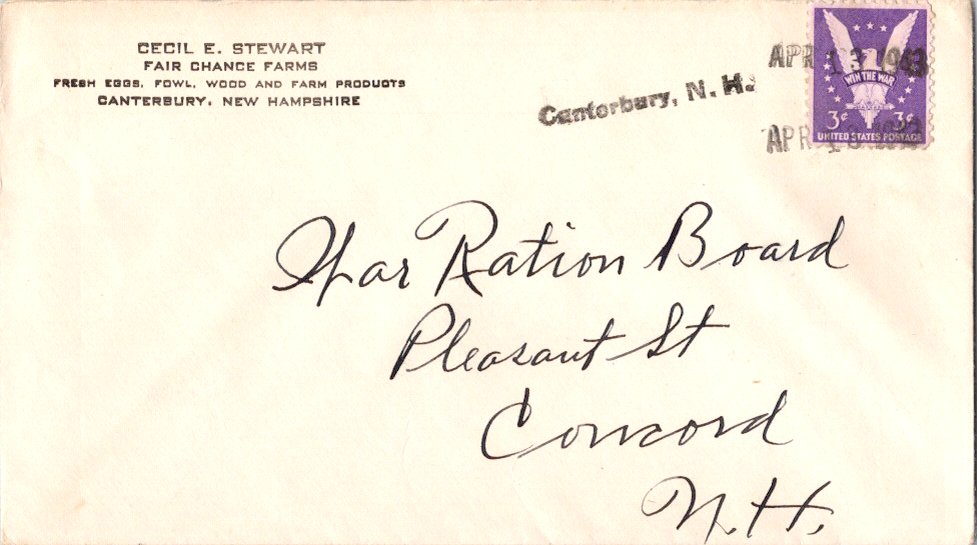 CECIL E. STEWART
FAIR CHANCE FARMS
FRESH EGGS, FOWL, WOOD AND FARM PRODUCTS
CANTERBURY, NEW HAMPSHIRE
APR 13 1943
Canterbury, N. H.
WIN THE WAR
3¢ 3¢
UNITED STATES POSTAGE
APR 13
War Ration Board
Pleasant St
Concord
N.H.